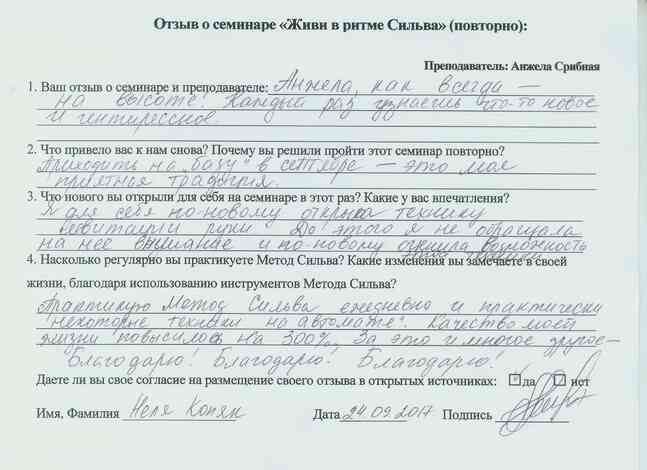 Отзыв о семинаре «Живи в ритме Сильва» (повторно):
Преподаватель: Анжела Срибная
1. Ваш отзыв о семинаре и преподавателе: Анжела, как всегда –
на высоте! Каждый раз узнаешь что-то новое
и интересное
2. Что привело вас к нам снова? Почему вы решили пройти этот семинар повторно?
Приходить на „базу" в сентябре – это моя
приятная традиция.
3. Что нового вы открыли для себя на семинаре в этот раз? Какие у вас впечатления?
Я для себя по-новому открыла технику
левитации руки. До этого я не обращала
на нее внимание и по-новому оценила возможность
этой техники
4. Насколько регулярно вы практикуете Метод Сильва? Какие изменения вы замечаете в своей
жизни, благодаря использованию инструментов Метода Сильва?
Практикую Метод Сильва ежедневно и практически
некоторые техники на автомате". Качество моей
жизни повысилось на 300%. За это и многое другое –
Благодарю! Благодарю! Благодарю!
Даете ли вы свое согласие на размещение своего отзыва в открытых источниках: да нет
Имя, Фамилия Неля Копяк Дата 24.09.2017 Подпись